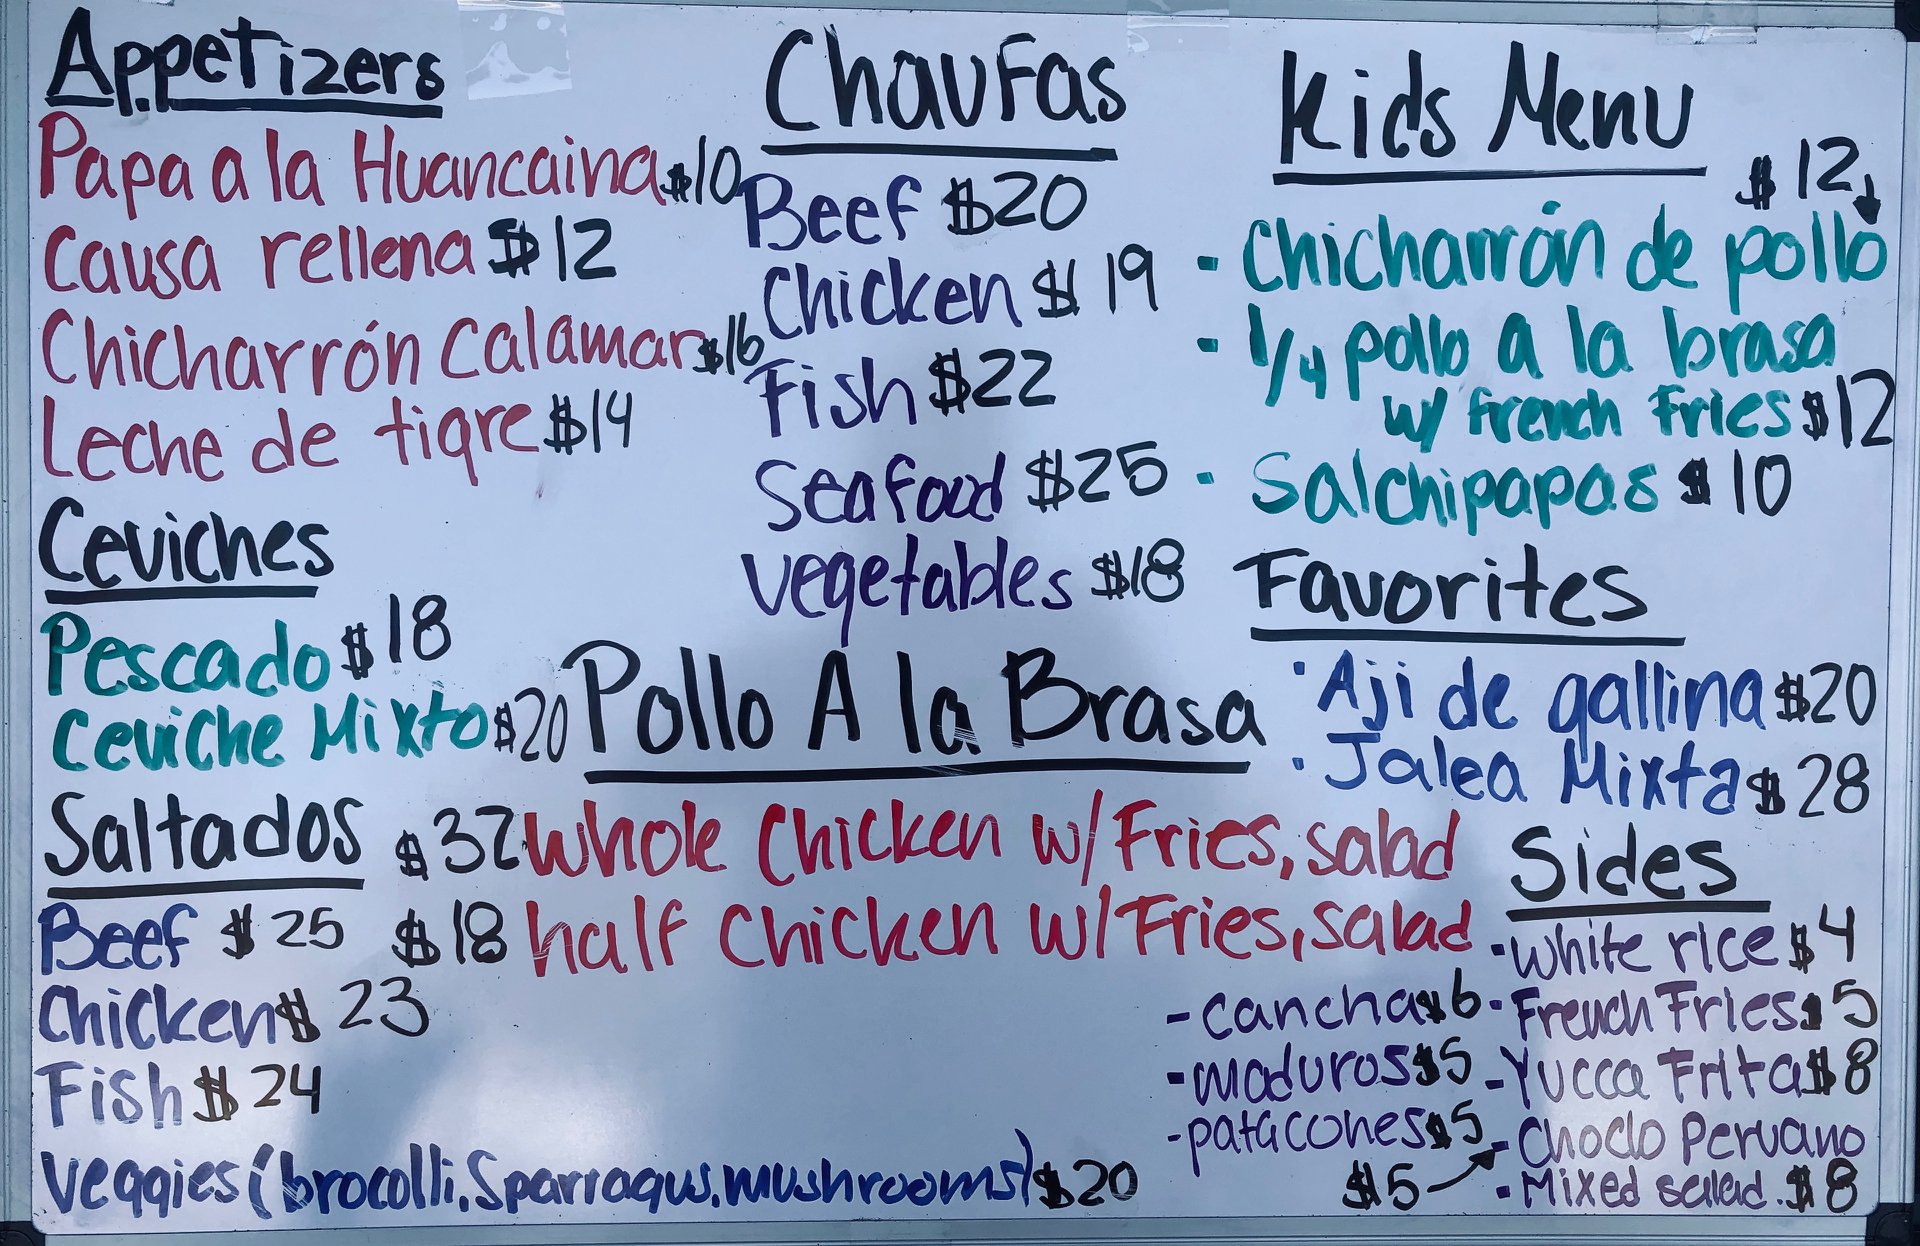 Appetizers
Papa a la Huancaina $10
Causa rellena $12
Chicharrón Calamar $16
Leche de tigre $14
Ceviches
Pescado $18
Ceviche Mixto $20
Saltados
Beef $25
Chicken $23
Fish $24
Veggies (brocolli, Sparragus, mushrooms) $20
Chaufas
Beef $20
Chicken $19
Fish $22
Seafood $25
vegetables $18
Pollo A la Brasa
$37 whole Chicken w/ Fries, salad
$18 half Chicken w/ Fries, salad
Kids Menu
$12
- Chicharrón de pollo
- 1/4 pollo a la brasa
w/ french fries $12
- Salchipapas $10
Favorites
· Aji de gallina $20
· Jalea Mixta $28
Sides
- white rice $4
- French Fries $5
- Yucca Frita $8
- Choclo Peruano
$5
- Mixed salad. $8
- cancha $6
- maduros $5
- patacones $5